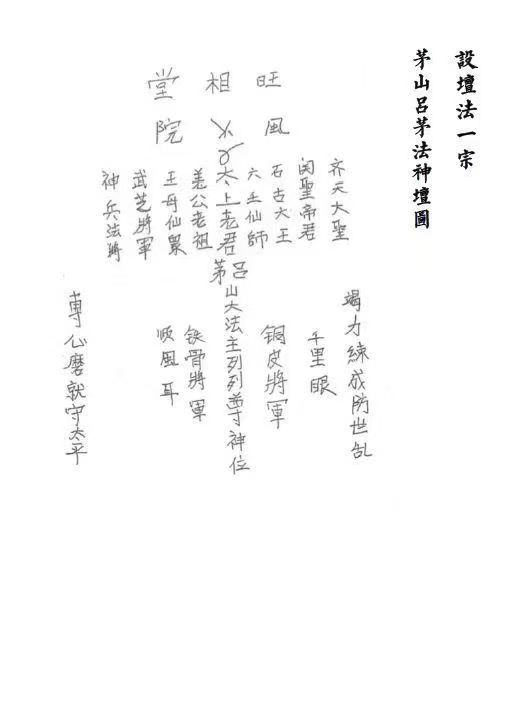 設壇法一宗
茅山呂茅法神壇圖
旺相堂
風院
齐天大聖
闵聖帝君
石古大王
六壬仙師
太上老君
姜公老祖
王母仙眾
武芝將軍
神兵法將
呂茅山大法主列列尊神位
竭力練成防世乱
千里眼
铜皮將軍
铁骨將軍
顺風耳
專心磨就守太平